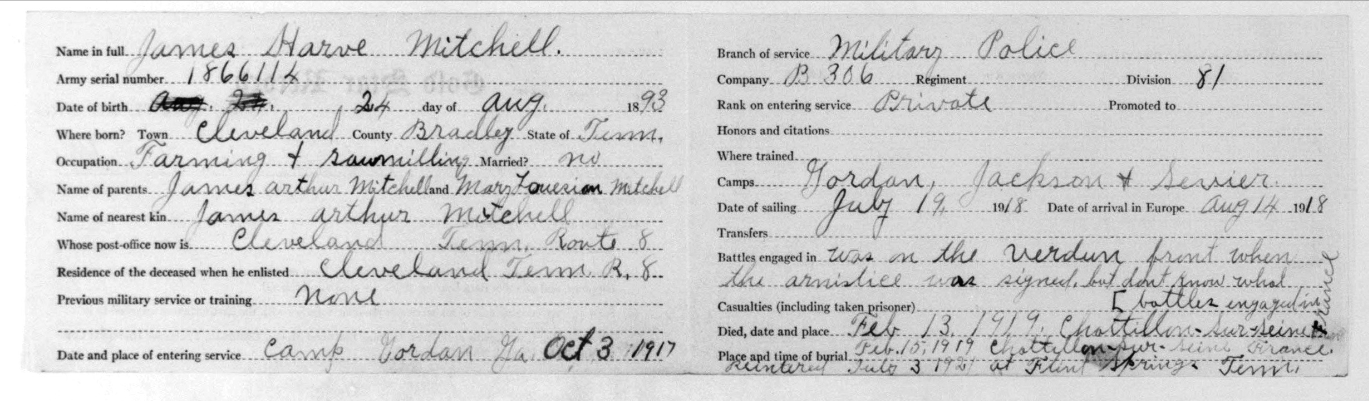 Name in full James Harve Mitchell.
Army serial number 1866114
Date of birth Aug. 24, 24 day of Aug. 1893
Where born? Town Cleveland County Bradley State of Tenn.
Occupation Farming & sawmilling Married? no
Name of parents James arthur Mitchell and Mary Louesian Mitchell
Name of nearest kin James arthur Mitchell
Whose post-office now is Cleveland Tenn, Route 8
Residence of the deceased when he enlisted Cleveland Tenn R. 8.
Previous military service or training None
Date and place of entering service Camp Gordan Ga. Oct 3 1917
Branch of service Military Police
Company B 306 Regiment Division 81
Rank on entering service Private Promoted to
Honors and citations
Where trained
Camps Gordan, Jackson & Sevier
Date of sailing July 19, 1918 Date of arrival in Europe Aug 14 1918
Transfers
Battles engaged in was on the Verdun front when
the armistice was signed, but don't know what
Casualties (including taken prisoner) [battles engaged in
Died, date and place Feb. 13, 1919. Chattillon-sur-seine France
Place and time of burial Feb. 15, 1919 Chattillon-sur-seine France
Reintered July 3 1921 at Flint Springs Tenn.